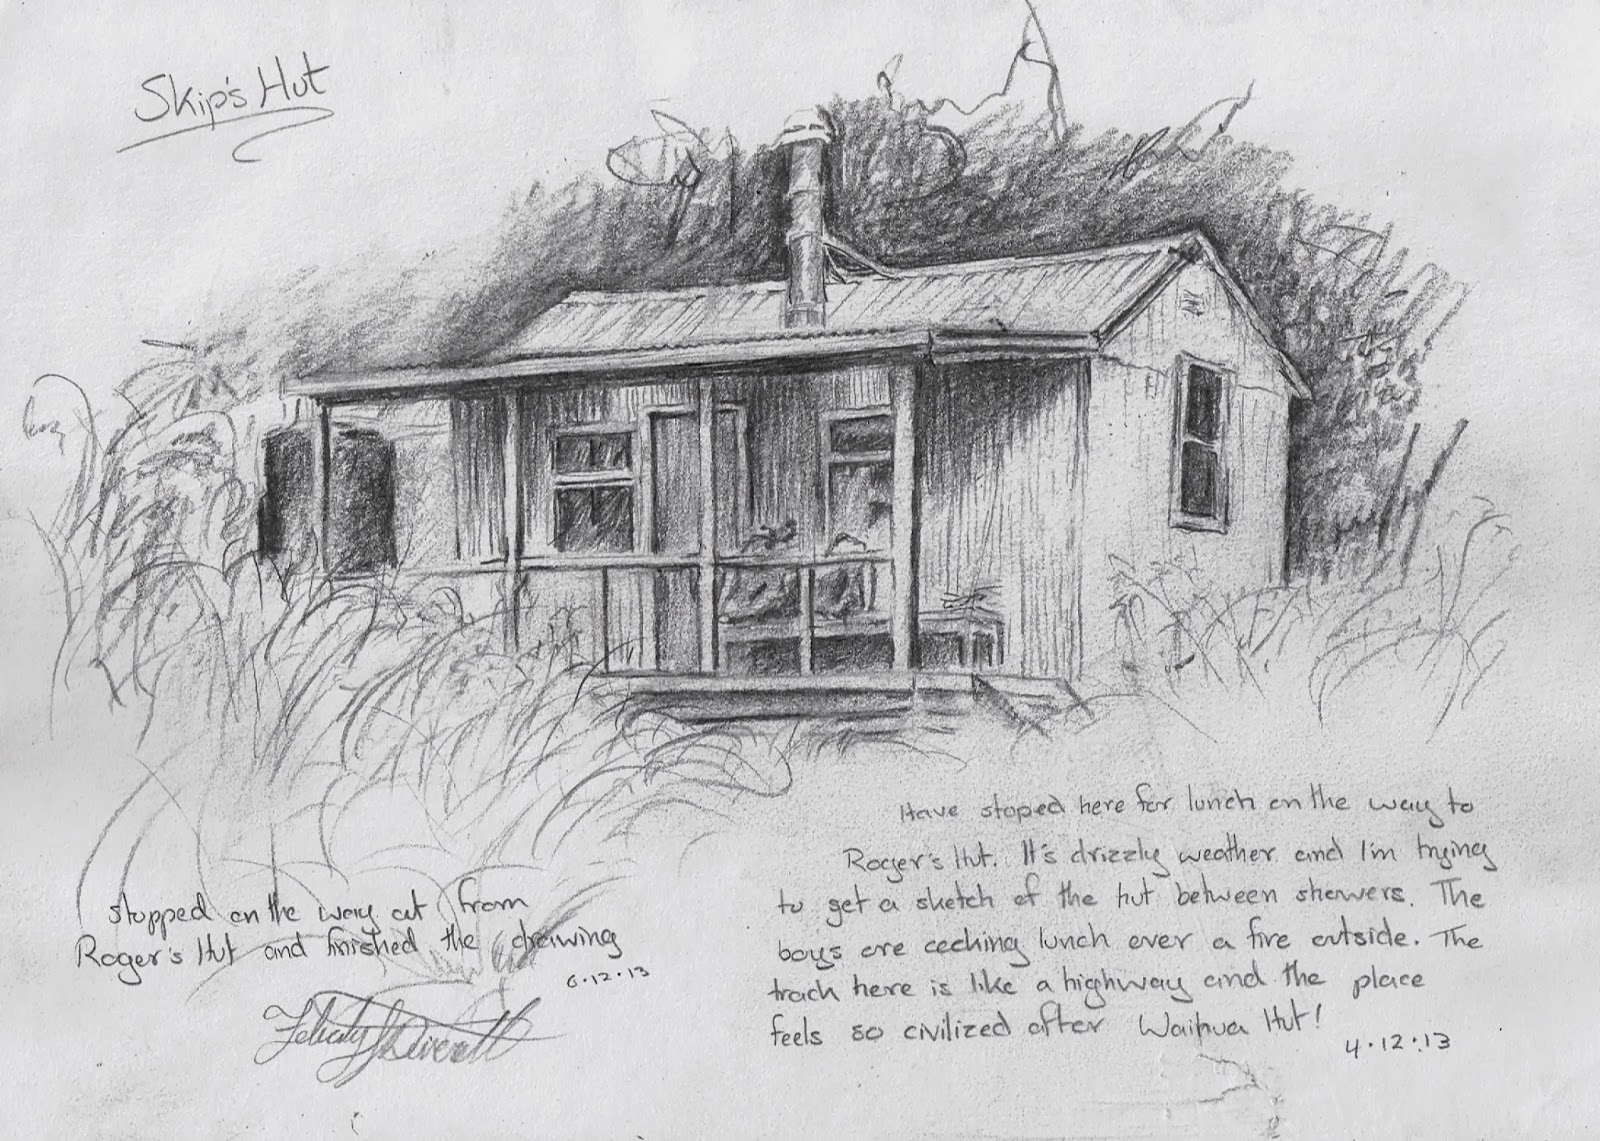 Skip's Hut
Have stoped here for lunch on the way to
Roger's Hut. It's drizzly weather and I'm trying
to get a sketch of the hut between showers. The
boys are cooking lunch over a fire outside. The
track here is like a highway and the place
feels so civilized after Waipua Hut!
4.12.13
stopped on the way out from
Roger's Hut and finished the drawing
6.12.13
Felicity Deverell